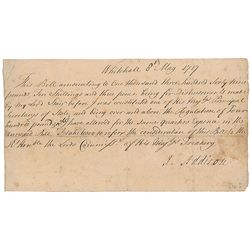 Whitehall 8th May 1717
This Bill amounting to One thousand three hundred Sixty three
pounds, Five Shillings and three pence being for Disbursements made
by My Lord Stair before I was constituted one of His Majtys Principal
Secretarys of State, and being over and above the Regulation of Four
hundred pounds allowed for the Quarters Expence in the
Bill, to refer the consideration of this Bill to the
Rt Honble the Lords Commissrs of His Majtys Treasury
J. Addison